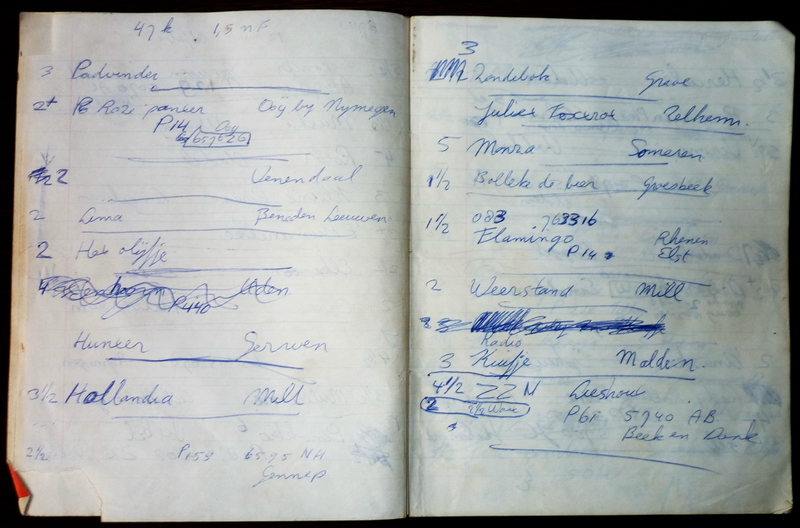 47 k 1,5 n F
3 Padvinder
2+ Roze panter Ooy by Nymegen
P14 Ooy
657626
2 Venendaal
2 Lima Beneden Leeuwen
2 Het olijfje
4 Uden
P440
Huneer Gerwen
3 1/2 Hollandia Mill
2 1/2 P153 6595 NH
Gennep
3
Zondebok Grave
Julier Foxcrox Zelhem.
5 Monza Someren
1 1/2 Bolleke de bier Groesbeek
1 1/2 083 763316
Flamingo Rhenen
P14 Elst
2 Weerstand Mill
Radio
3 Kuifje Malden.
4 1/2 ZZ N Lieshout
2 2 1/2 Uur P61 5740 AB
Beek en Donk